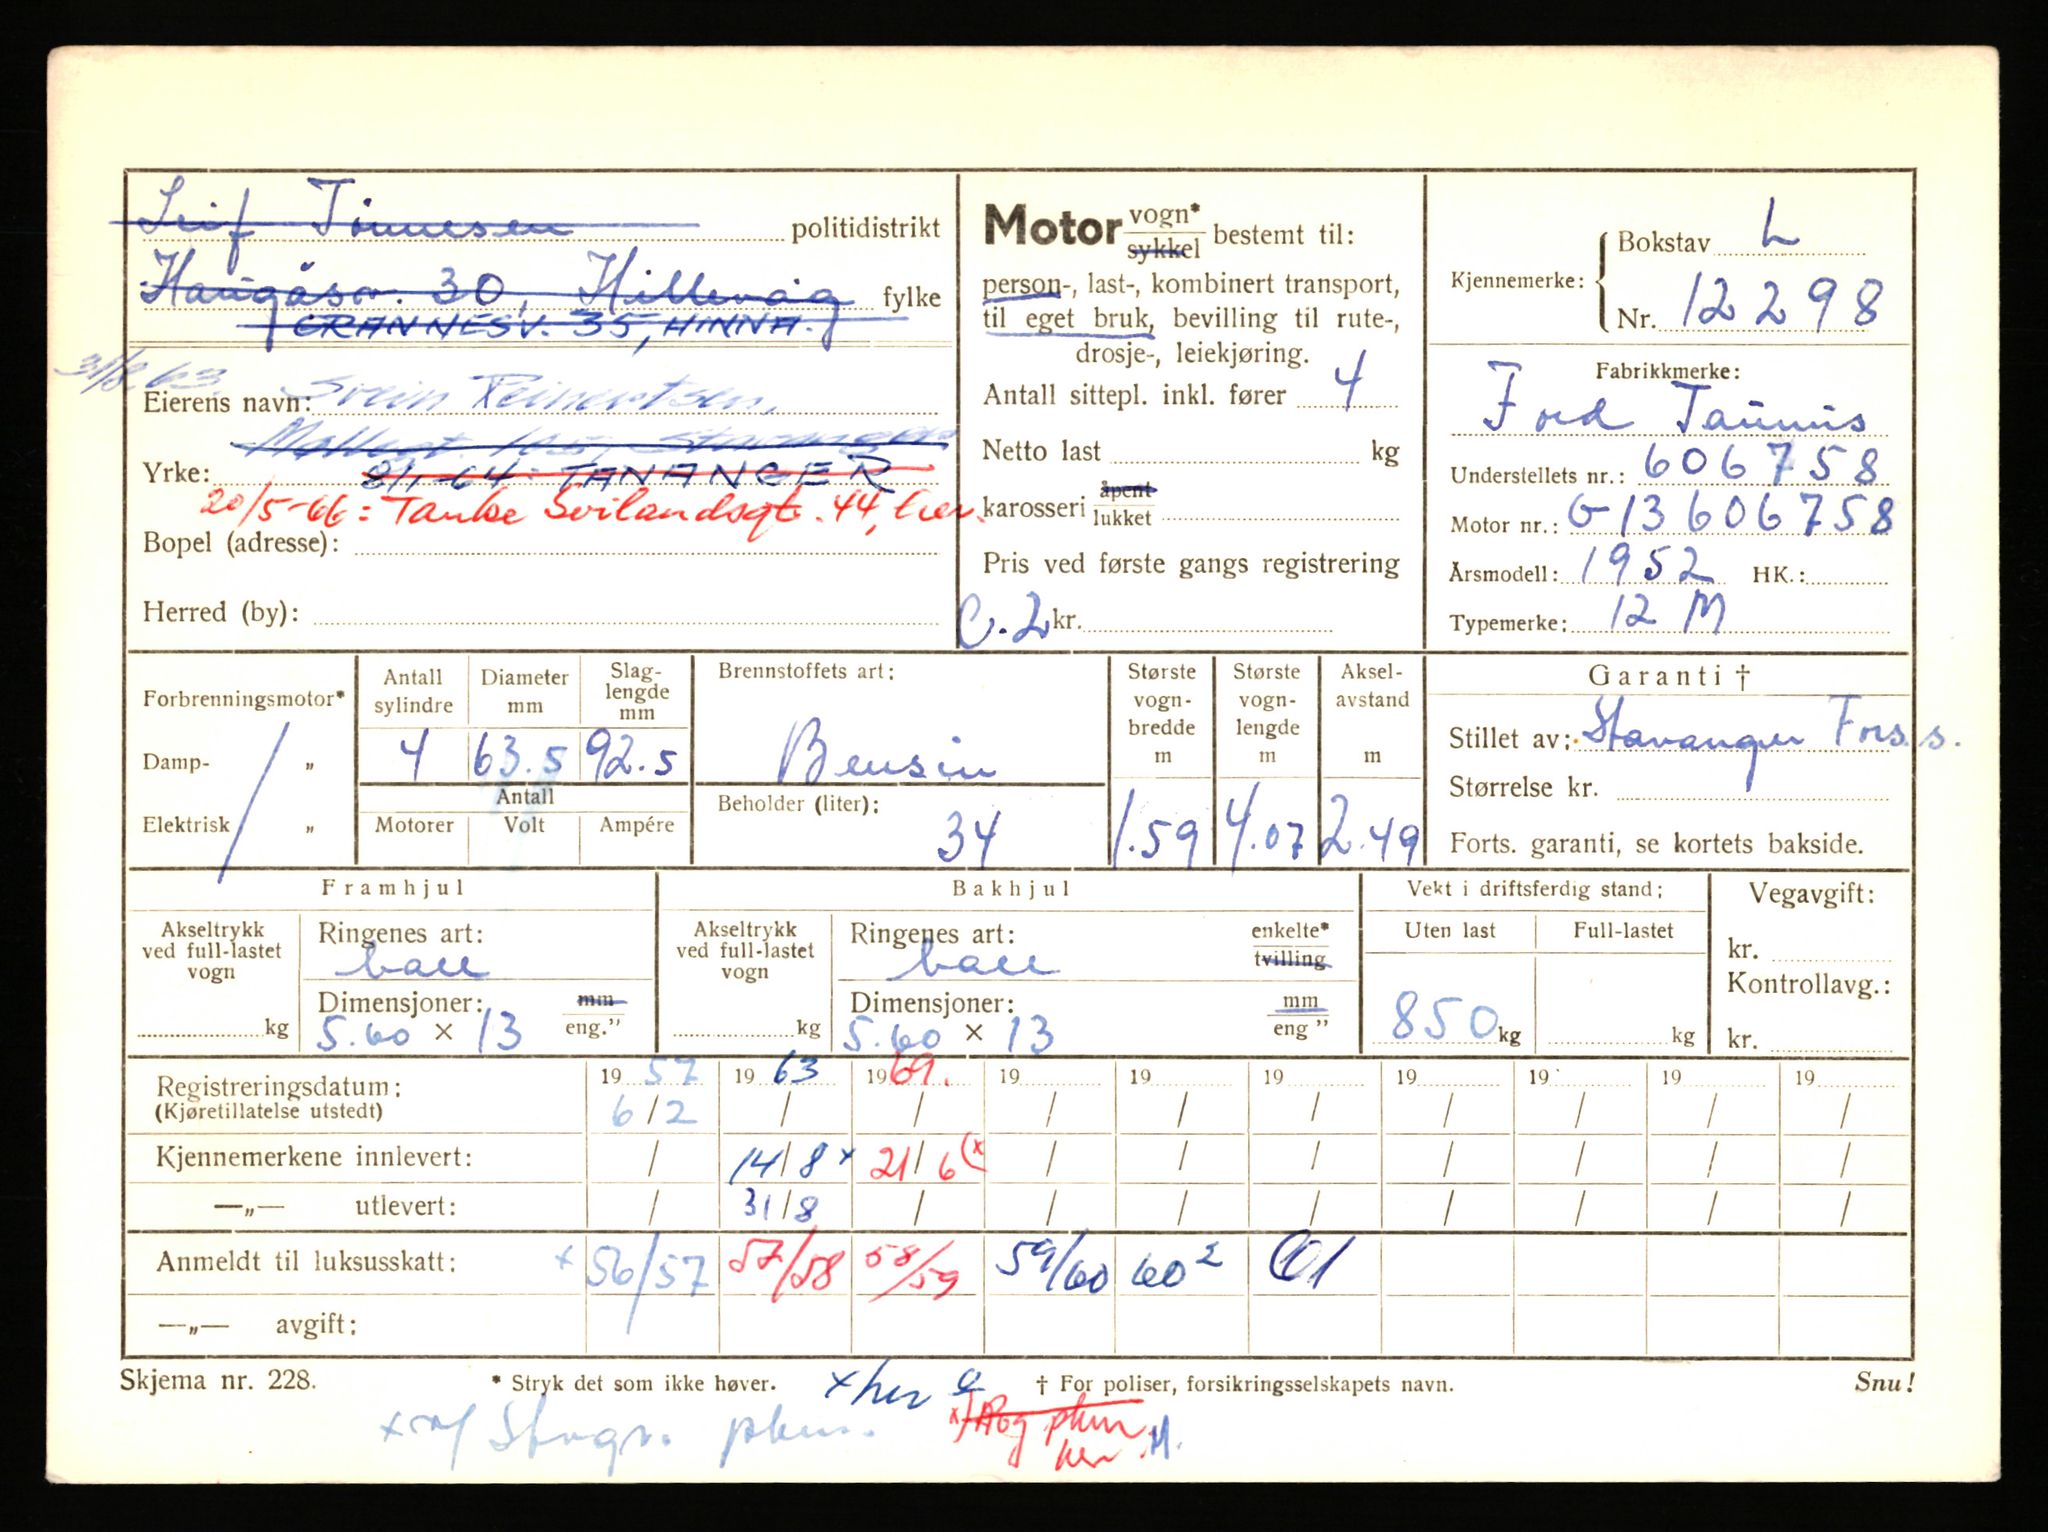 Leif Tönnesen politidistrikt
Haugåsv. 30, Hillevåg fylke
GRANNESV. 35, HINNA.
31/8 63
Eierens navn: Svein Reinertsen.
Møllegt. Stavanger
Yrke: 8/1-64: TANANGER
20/5-66: Tanke Svilandsgt. 44, her.
Bopel (adresse):
Herred (by):
Motor vogn* sykkel bestemt til:
person-, last-, kombinert transport,
til eget bruk, bevilling til rute-,
drosje-, leiekjøring.
Antall sittepl. inkl. fører 4
Netto last kg
karosseri åpent lukket
Pris ved første gangs registrering
C.2 kr.
Kjennemerke: Bokstav L
Nr. 12298
Fabrikkmerke:
Ford Taunus
Understellets nr.: 606758
Motor nr.: G-13606758
Årsmodell: 1952 HK.:
Typemerke: 12 M
Forbrenningsmotor*
Damp- „
Elektrisk „
Antall sylindre 4
Diameter mm 63.5
Slaglengde mm 92.5
Antall
Motorer Volt Ampére
Brennstoffets art:
Bensin
Beholder (liter):
34
Største vognbredde m 1.59
Største vognlengde m 4.07
Akselavstand m 2.49
Garanti †
Stillet av: Stavanger Fors.s.
Størrelse kr.
Forts. garanti, se kortets bakside.
Framhjul
Akseltrykk ved full-lastet vogn kg
Ringenes art: ball
Dimensjoner: mm eng."
5.60 x 13
Bakhjul
Akseltrykk ved full-lastet vogn kg
Ringenes art: ball enkelte* tvilling
Dimensjoner: mm eng "
5.60 x 13
Vekt i driftsferdig stand:
Uten last Full-lastet
850 kg kg
Vegavgift:
kr.
Kontrollavg.:
kr.
Registreringsdatum: 1957 1963 1969. 19 19 19 19 19 19 19
(Kjøretillatelse utstedt) 6/2 / / / / / / / / /
Kjennemerkene innlevert: / 14/8 x 21/6 (x / / / / / / /
—„— utlevert: / 31/8 / / / / / / / /
Anmeldt til luksusskatt: x 56/57 57/58 58/59 59/60 60² 61
—„— avgift:
Skjema nr. 228. * Stryk det som ikke høver. x her † For poliser, forsikringsselskapets navn. Snu!
x) Rog pkm
her M.